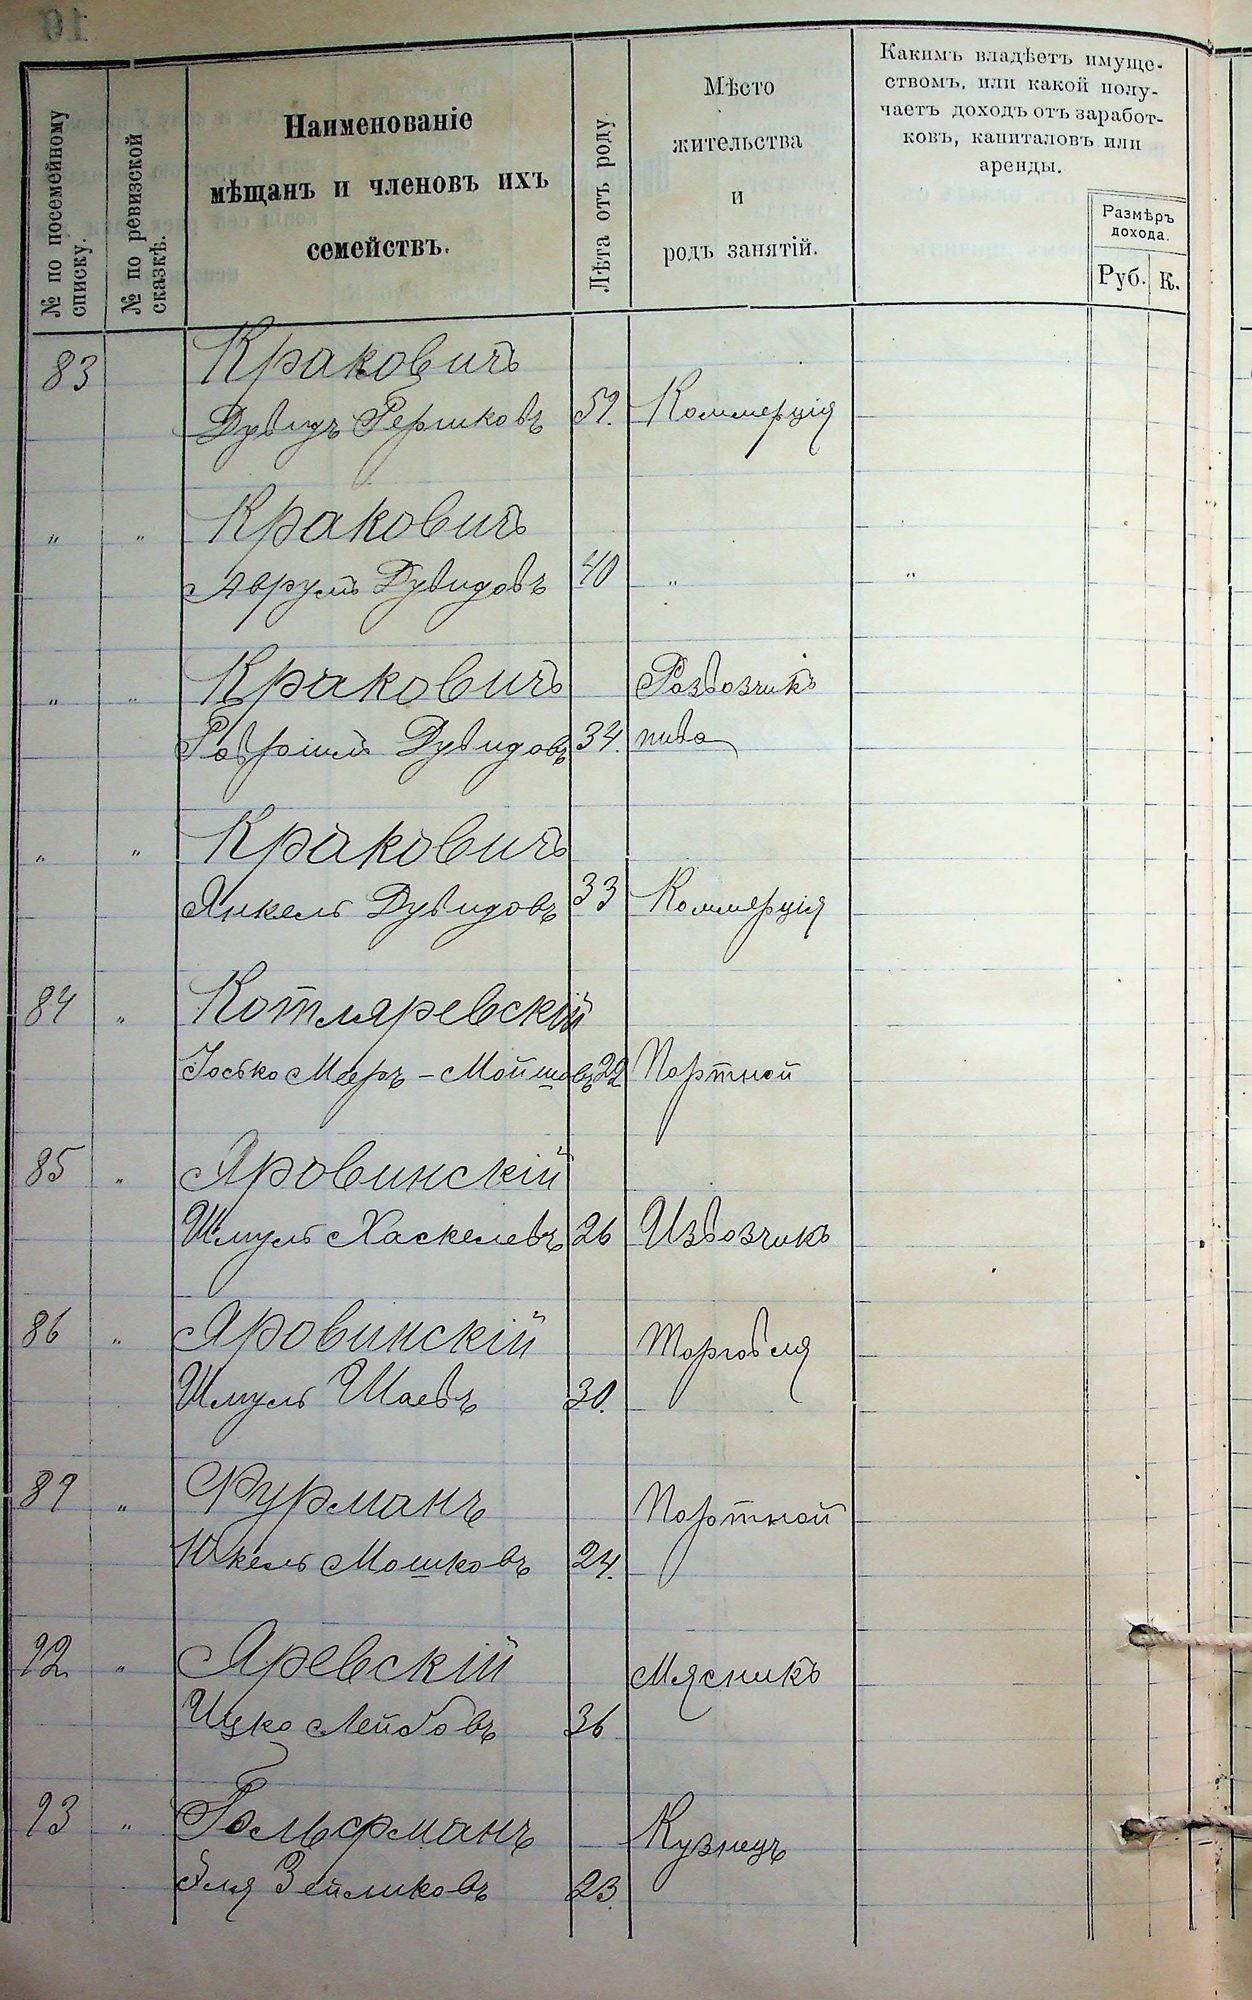 10
№ по посемейному
списку.
№ по ревизской
сказкѣ.
Наименованіе
мѣщанъ и членовъ ихъ
семействъ.
Лѣта отъ роду.
Мѣсто
жительства
и
родъ занятій.
Какимъ владѣетъ имуще-
ствомъ, или какой полу-
чаетъ доходъ отъ заработ-
ковъ, капиталовъ или
аренды.
Размѣръ
дохода.
Руб. К.
83 Краковичъ
Дувидъ Гершковъ 59. Коммерція
„ „ Краковичъ
Аврумъ Дувидовъ 40 „ „
„ „ Краковичъ Развозчикъ
Дувидовъ 34. пива
„ „ Краковичъ
Янкель Дувидовъ 33 Коммерція
84 „ Котляревскій
Іосько Мееръ-Мойшовъ 22 Портной
85 „ Яровинскій
Шмуль Хаскелевъ 26 Извозчикъ
86 „ Яровинскій Торговля
Шмуль Шаевъ 30.
89 „ Фурманъ Портной
Юкель Мошковъ 24.
92 „ Яревскій Мясникъ
Ицко Лейбовъ 36
93 „ Гольфманъ Кузнецъ
Эля Зейликовъ 23.